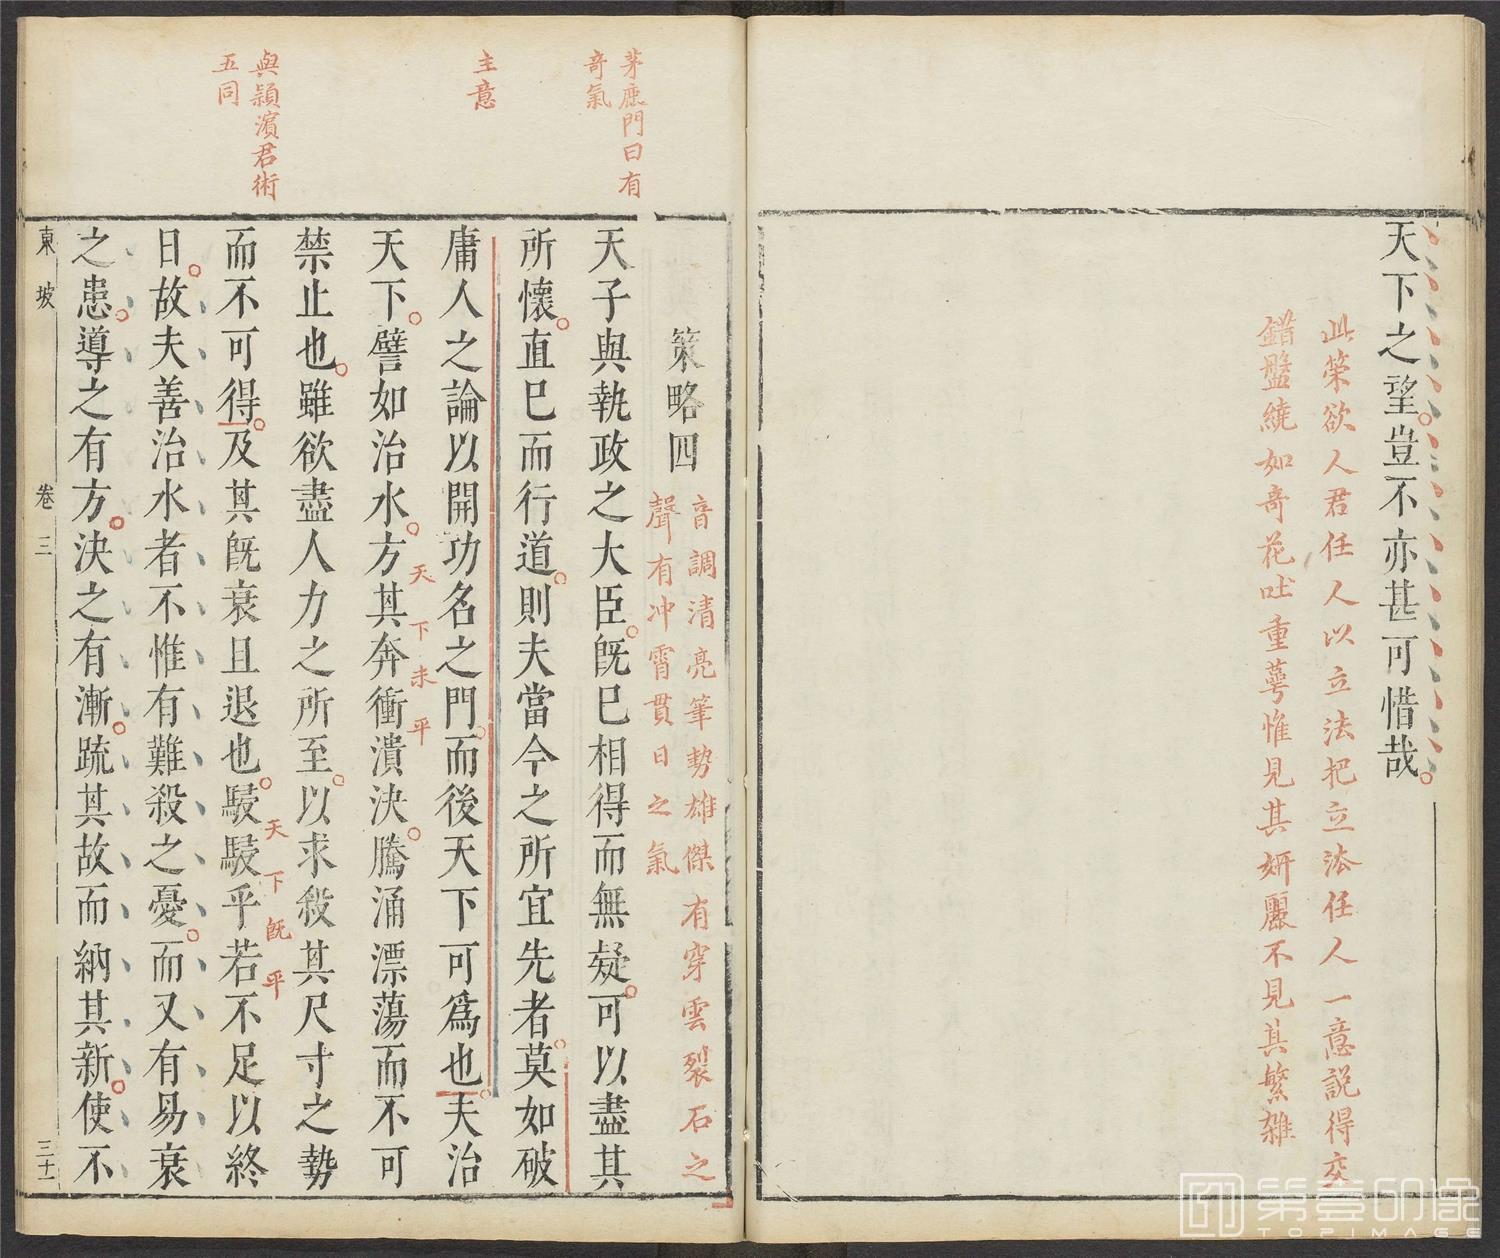 天下之望豈不亦甚可惜哉
此策欲人君任人以立法把立法任人一意說得交
錯盤繞如奇花吐重萼惟見其妍麗不見其繁雜
茅鹿門曰有
奇氣
主意
與潁濱君術
五同
策略四
音調清亮筆勢雄傑有穿雲裂石之
聲有冲霄貫日之氣
天子與執政之大臣既已相得而無疑可以盡其
所懷直已而行道則夫當今之所宜先者莫如破
庸人之論以開功名之門而後天下可爲也夫治
天下譬如治水方其奔衝潰決騰涌漂蕩而不可
天下未平
禁止也雖欲盡人力之所至以求殺其尺寸之勢
而不可得及其既衰且退也駸駸乎若不足以終
天下既平
日故夫善治水者不惟有難殺之憂而又有易衰
之患導之有方決之有漸疏其故而納其新使不
東坡
卷三
三十一
第壹印像
TOPIMAGE